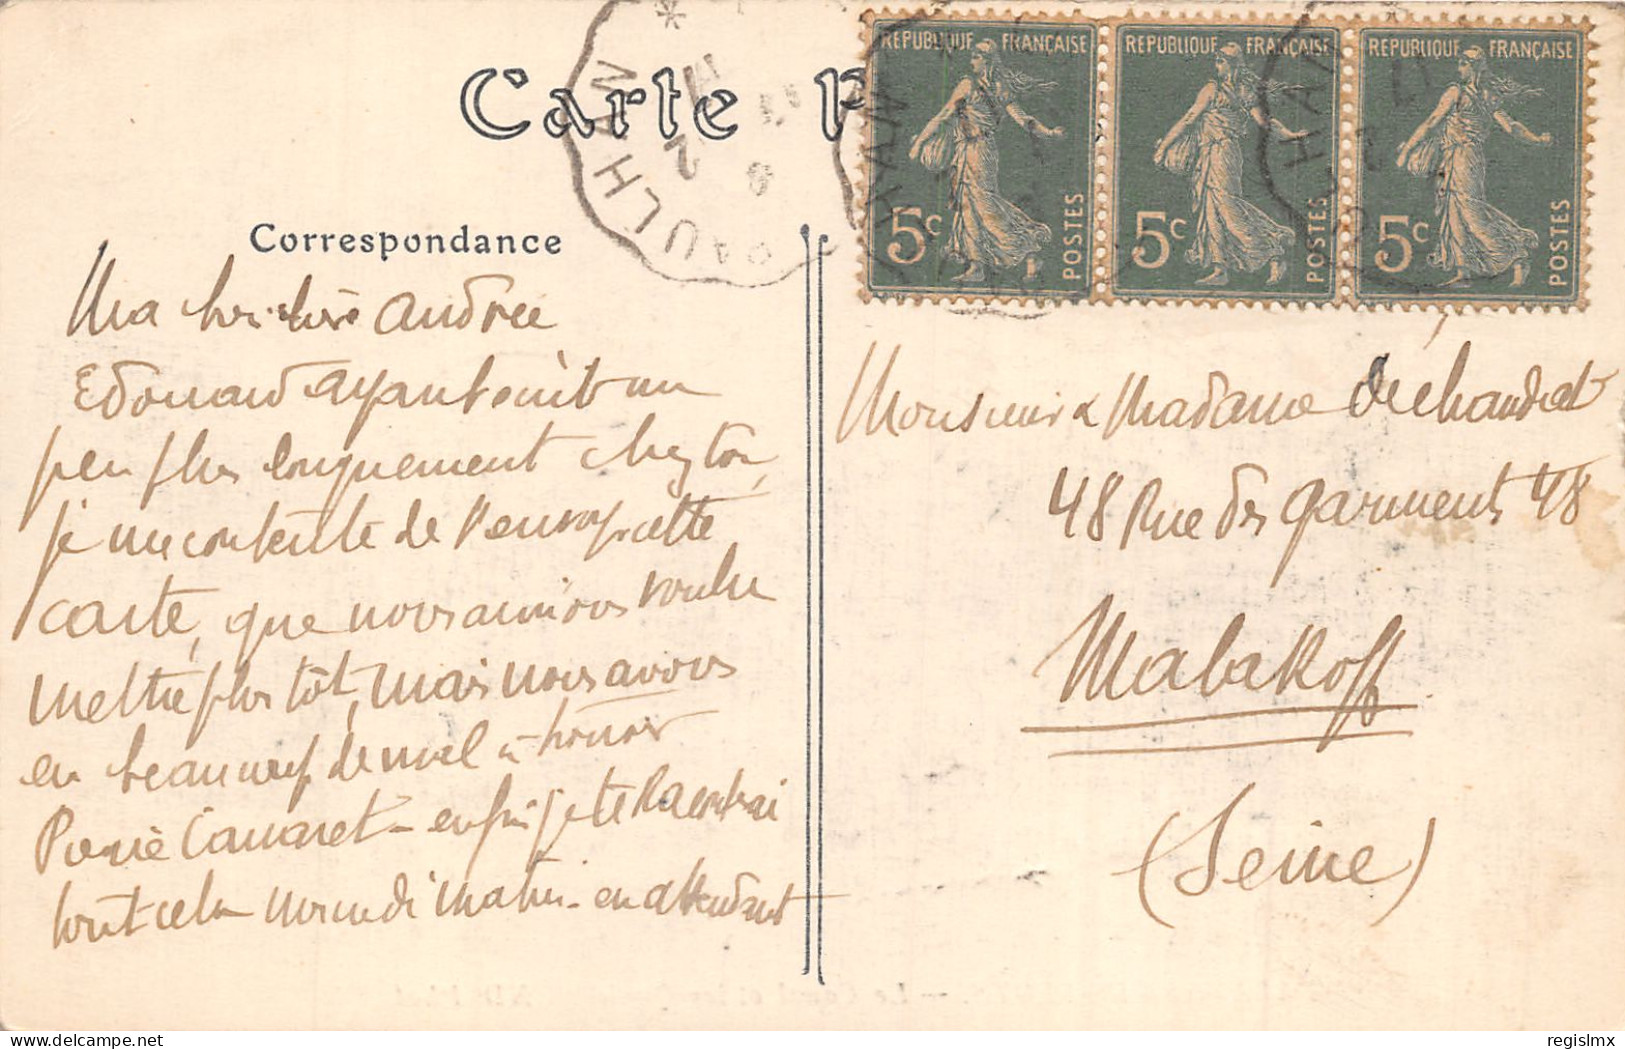 Carte P
PAULHAN
RÉPUBLIQUE FRANÇAISE
5c POSTES
RÉPUBLIQUE FRANÇAISE
5c POSTES
RÉPUBLIQUE FRANÇAISE
5c POSTES
Correspondance
Ma chère Andrée
Edouard ayant écrit un
peu plus longuement chez toi,
je me contente de t'envoyer cette
carte, que nous aurions voulu
mettre plus tôt, mais nous avons
eu beaucoup de mal à trouver
Camaret - enfin je te raconterai
tout cela mercredi matin - en attendant
Monsieur & Madame Déchaudat
48 Rue des Garments 48
Malakoff
(Seine)
regislmx